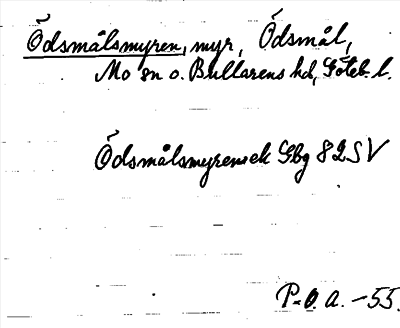 Ödsmålsmyren, myr, Ödsmål,
Mo sn o. Bullarens hd, Göteb. l.
Ödsmålsmyren ek Gbg 82 SV
P.O.A. -55.